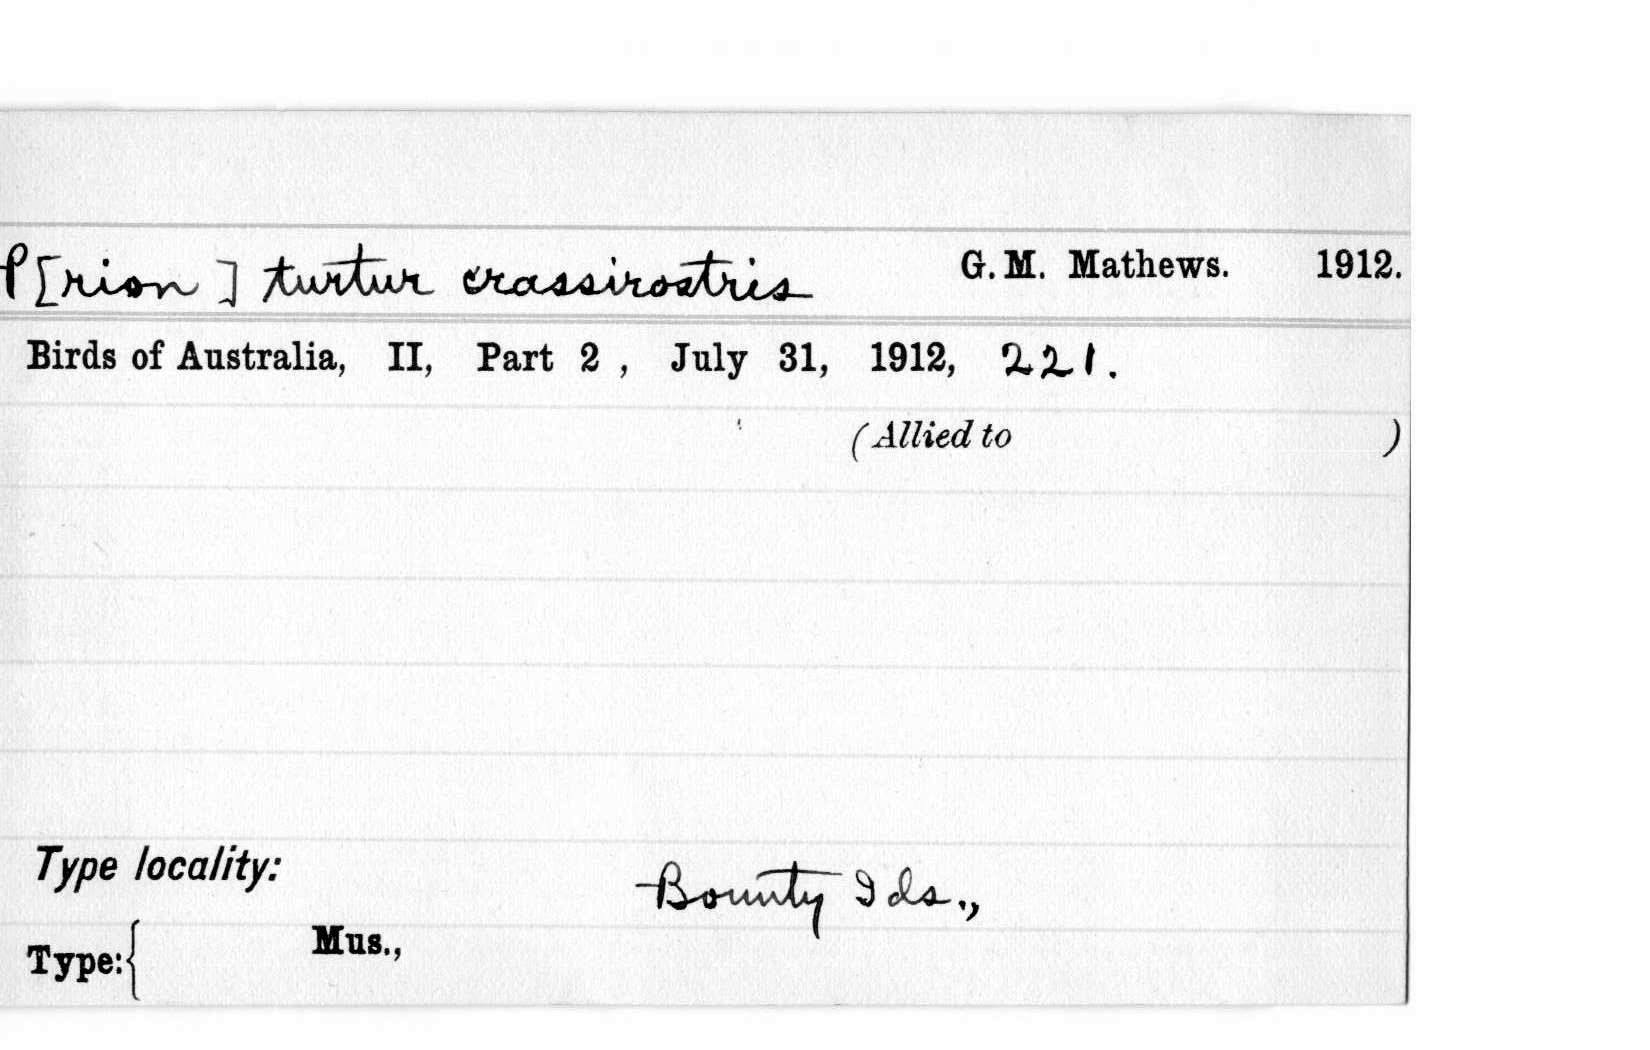 P[rion] turtur crassirostris G. M. Mathews. 1912.
Birds of Australia, II, Part 2, July 31, 1912, 221.
(Allied to )
Type locality: Bounty Ids.,
Type:{ Mus.,